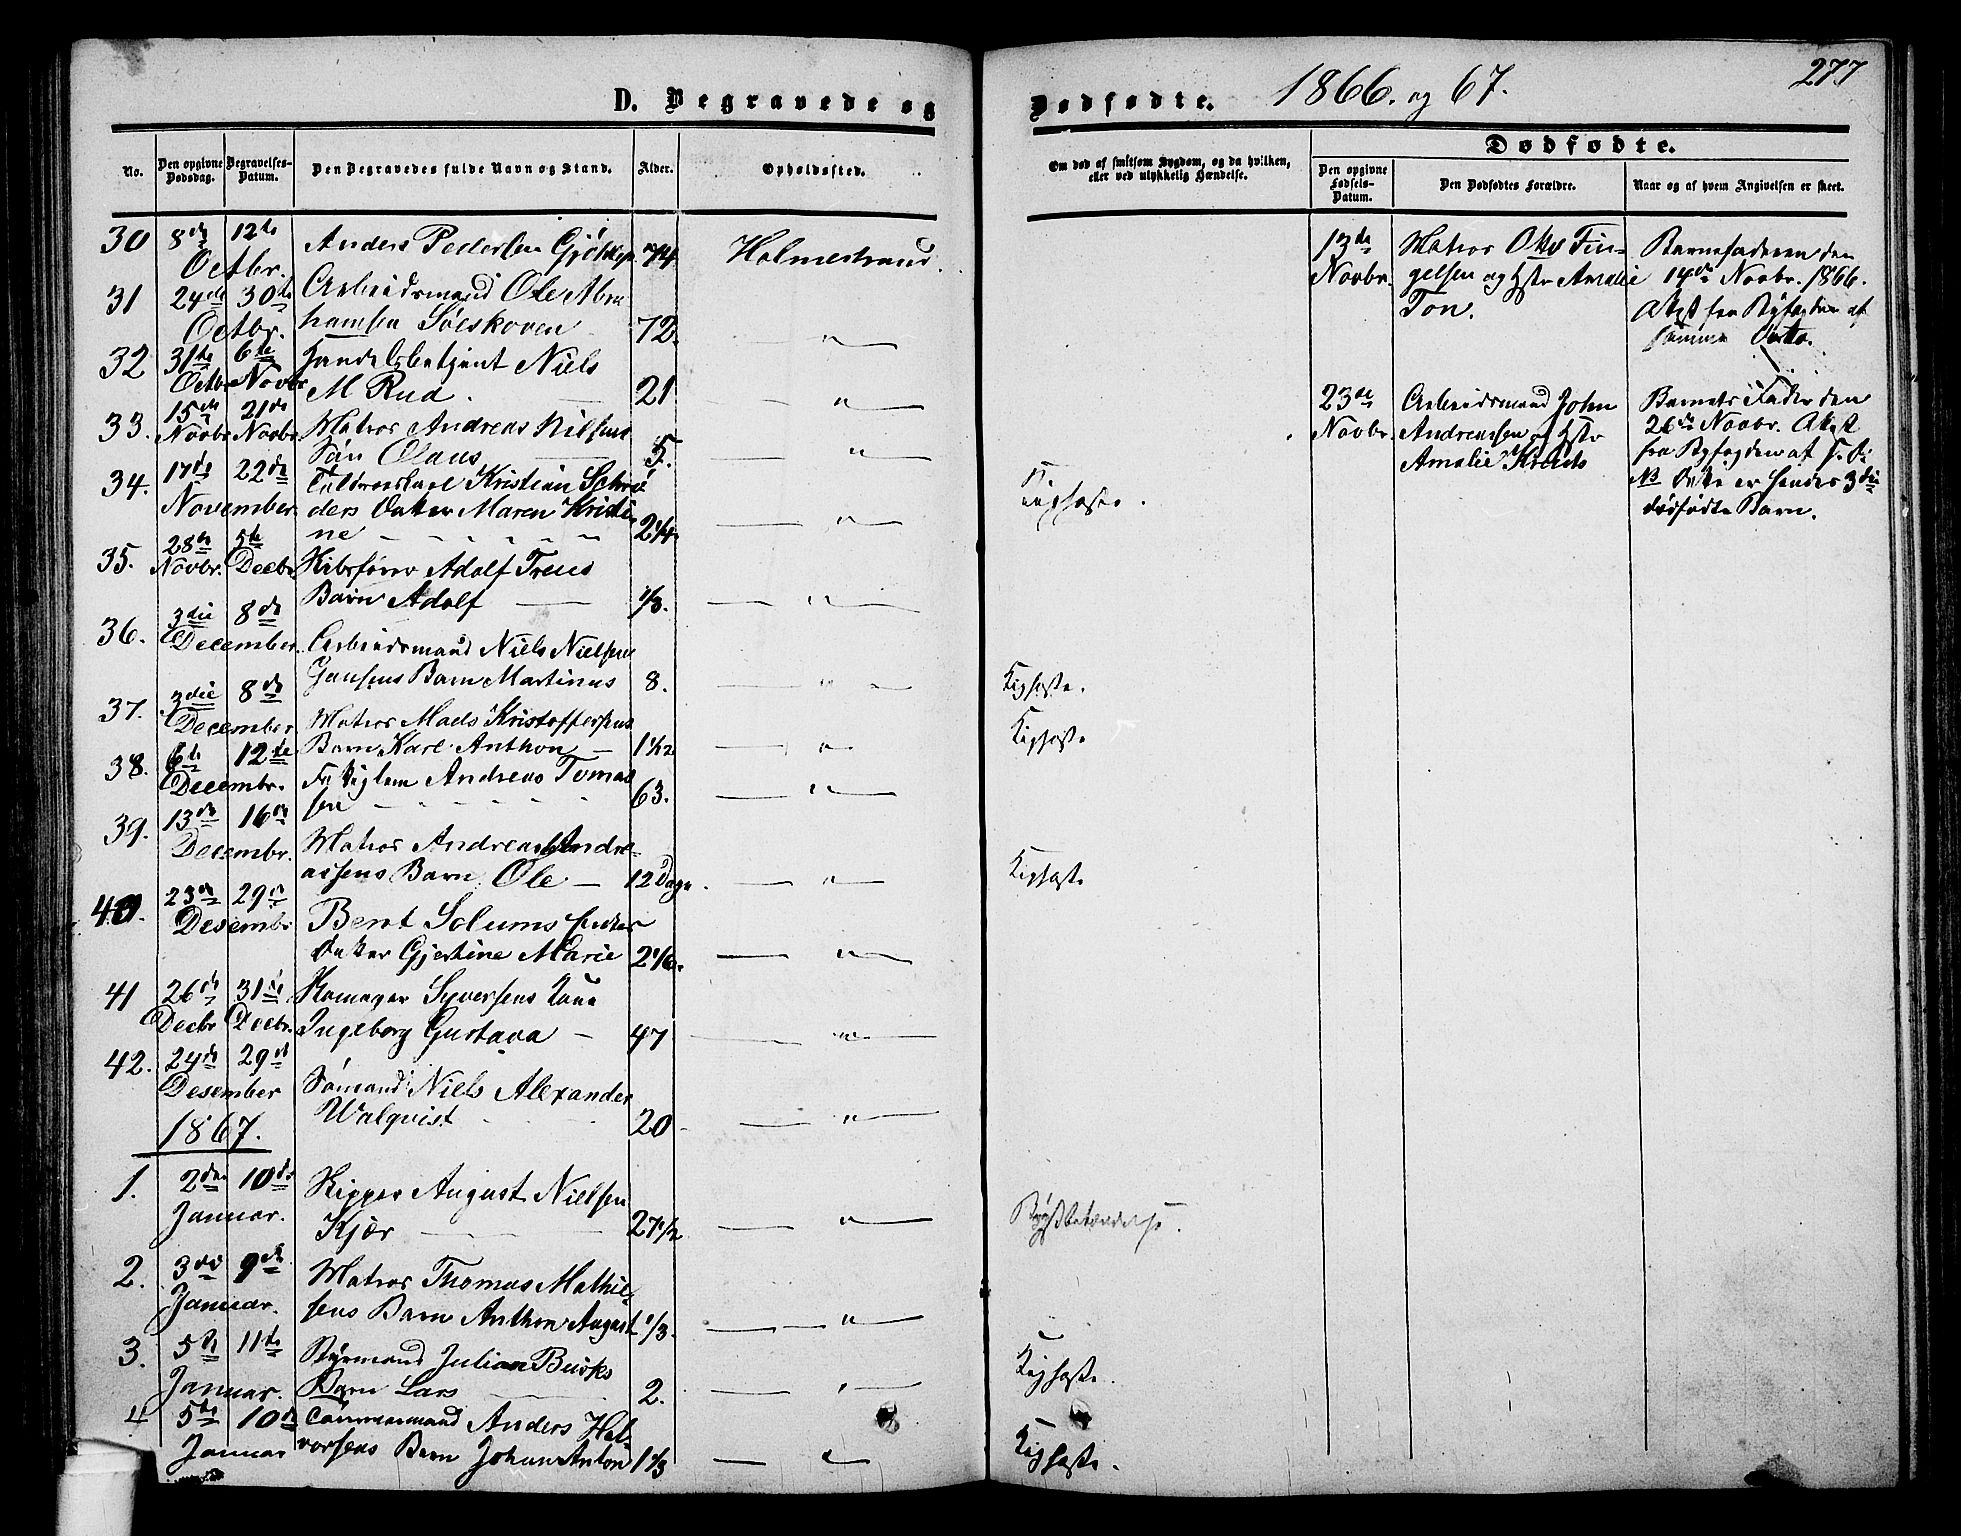 D. Begravede og Dødfødte. 1866. og 67. 277
No.
Den opgivne Dødsdag.
Begravelses-Datum.
Den Begravedes fulde Navn og Stand.
Alder.
Opholdssted.
Om død af smitsom Sygdom, og da hvilken,
eller ved ulykkelig Hændelse.
Dødfødte.
Den opgivne Fødsels-Datum.
Den Dødfødtes Forældre.
Naar og af hvem Angivelsen er skeet.
30 8de 12te Anders Pedersen 74. Holmestrand.
Octbr.
31 24de 30te Arbeidsmand Ole Abra
Octbr. hamsen Solskoven 72. — " —
32 31te 6te Handelsbetjent Niels
Octbr Novbr M Rud. 21 — " —
33. 15de 21de Matros Andreas Nilsens
Novbr Novbr Søn Olaus 5. — " —
34. 17de 22de Kristian Schrø
November. ders Datter Maren Kristi
ne 2 1/4 — " — Kighoste.
35. 28de 5te Adolf Treus
Novbr. Decbr Barn Adolf — 1/3. — " —
36. 3die 8de Arbeidsmand Niels Nielsen
December. Jansens Barn Martinus 8. — " — Kighoste.
37. 3die 8de Matros Mads Kristoffersens
December Barn Karl Anthon — 1 1/2 — " — Kighoste
38. 6te 12te Andreas Tomas
Decembr. sen 63. — " —
39. 13de 16de Matros Andreas Andre-
Decembr. assens Barn Ole — 12 Dage. — " — Kighoste
40. 23de 29de Bent Solums
Desembr Datter Gjertine Marie 2 1/6. — " —
41 26de 31te Syversens Kone
Decbr Decbr. Ingeborg Gustava — 47 — " —
42. 24de 29de Sømand Niels Alexander
Desember Walqvist 20 — " —
1867.
1. 2den 10de Skipper August Nielsen
Januar. Kjær 27 1/2 — " — Brystbetændelse.
2. 3die 9de Matros Thomas Mathie-
Januar. sens Barn Anthon August 1/3. — " —
3. 5te 11te Styrmand Julian Busks
Januar. Barn Lars 2. — " — Kighoste.
4 5te 10de Tømmermand Anders Hal-
Januar vorsens Barn Johan Anton 1 1/3 — " — Kighoste.
13de
Novbr.
Matros Fin-
gelsen og Hstr Amalie
Ton.
Barnefaderen den
14de Novbr. 1866.
Attest fra Byfogden af
samme Dato.
23de
Novbr.
Arbeidsmand John
Andreassen og Hstr
Amalie
Barnets Fader den
26de Novbr. Attest
fra Byfogden af
NB Dette er hendes 3die
dødfødte Barn.